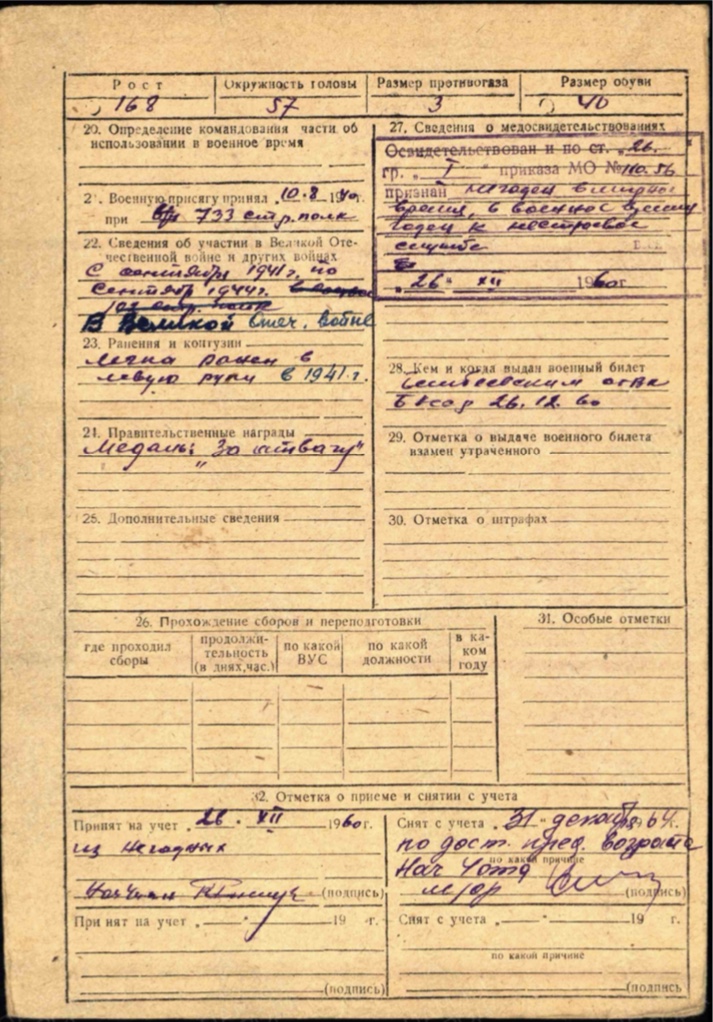 Рост Окружность головы Размер противогаза Размер обуви
168 57 3 40
20. Определение командования части об
использовании в военное время
21. Военную присягу принял „10.8 1940г.
при 733 стр. полк
22. Сведения об участии в Великой Оте-
чественной войне и других войнах
С сентября 1941 г. по
Сентябрь 1944 г.
В Великой Отеч. войне
23. Ранения и контузии
легка ранен в
левую руки в 1941 г.
24. Правительственные награды
Медаль: „За отвагу"
25. Дополнительные сведения
27. Сведения о медосвидетельствованиях
Освидетельствован и по ст. „26.
гр. „I" приказа МО №110.56
признан негоден в мирное
время, в военное время
годен к нестроевой
службе
„26" XII 1960г
28. Кем и когда выдан военный билет
26.12.60
29. Отметка о выдаче военного билета
взамен утраченного
30. Отметка о штрафах
26. Прохождение сборов и переподготовки
где проходил сборы
продолжи-тельность (в днях,час.)
по какой ВУС
по какой должности
в ка-ком году
31. Особые отметки
32. Отметка о приеме и снятии с учета
Принят на учет „26. XII 1960г.
из негодных
(подпись)
Принят на учет „ " 19 г.
(подпись)
Снят с учета „31" декабря 64
по дост. пред. возраста
по какой причине
Нач 4отд
м-ор (подпись)
Снят с учета „ " 19 г.
по какой причине
(подпись